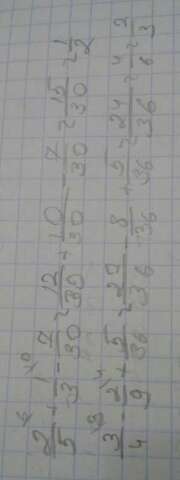 2/5 + 1/3 - 7/30 = 12/30 + 10/30 - 7/30 = 15/30 = 1/2
3/4 - 2/9 + 5/36 = 27/36 - 8/36 + 5/36 = 24/36 = 4/6 = 2/3